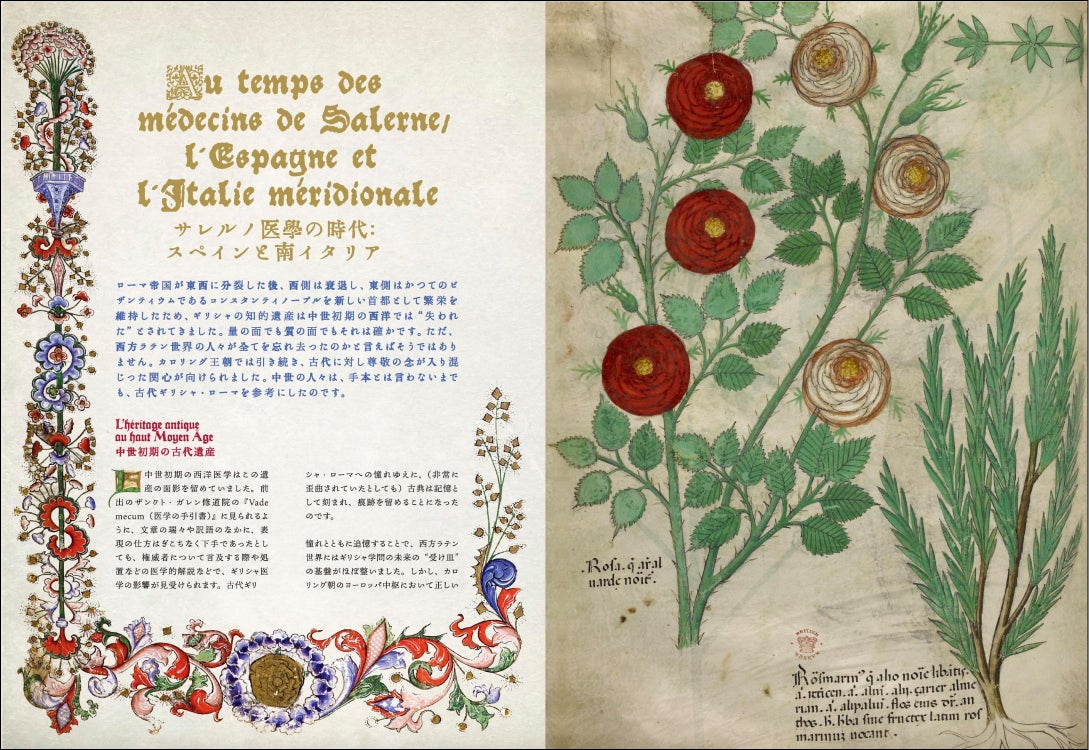 Au temps des
médecins de Salerne,
l'Espagne et
l'Italie méridionale
サレルノ医學の時代:
スペインと南イタリア
ローマ帝国が東西に分裂した後、西側は衰退し、東側はかつてのビ
ザンティウムであるコンスタンティノープルを新しい首都として繁栄を
維持したため、ギリシャの知的遺産は中世初期の西洋では“失われ
た”とされてきました。量の面でも質の面でもそれは確かです。ただ、
西方ラテン世界の人々が全てを忘れ去ったのかと言えばそうではあり
ません。カロリング王朝では引き続き、古代に対し尊敬の念が入り混
じった関心が向けられました。中世の人々は、手本とは言わないまで
も、古代ギリシャ・ローマを参考にしたのです。
L'héritage antique
au haut Moyen Age
中世初期の古代遺産
中世初期の西洋医学はこの遺
産の面影を留めていました。前
出のザンクト・ガレン修道院の『Vade
mecum（医学の手引書）』に見られるよ
うに、文章の端々や訳語のなかに、表
現の仕方はぎこちなく下手であったとし
ても、権威者について言及する際や処
置などの医学的解説などで、ギリシャ医
学の影響が見受けられます。古代ギリ
シャ・ローマへの憧れゆえに、（非常に
歪曲されていたとしても）古典は記憶と
して刻まれ、痕跡を留めることになった
のです。
憧れとともに追憶することで、西方ラテン
世界にはギリシャ学問の未来の“受け皿”
の基盤がほぼ整いました。しかし、カロ
リング朝のヨーロッパ中枢において正しい
Rosa. q̄
noīe